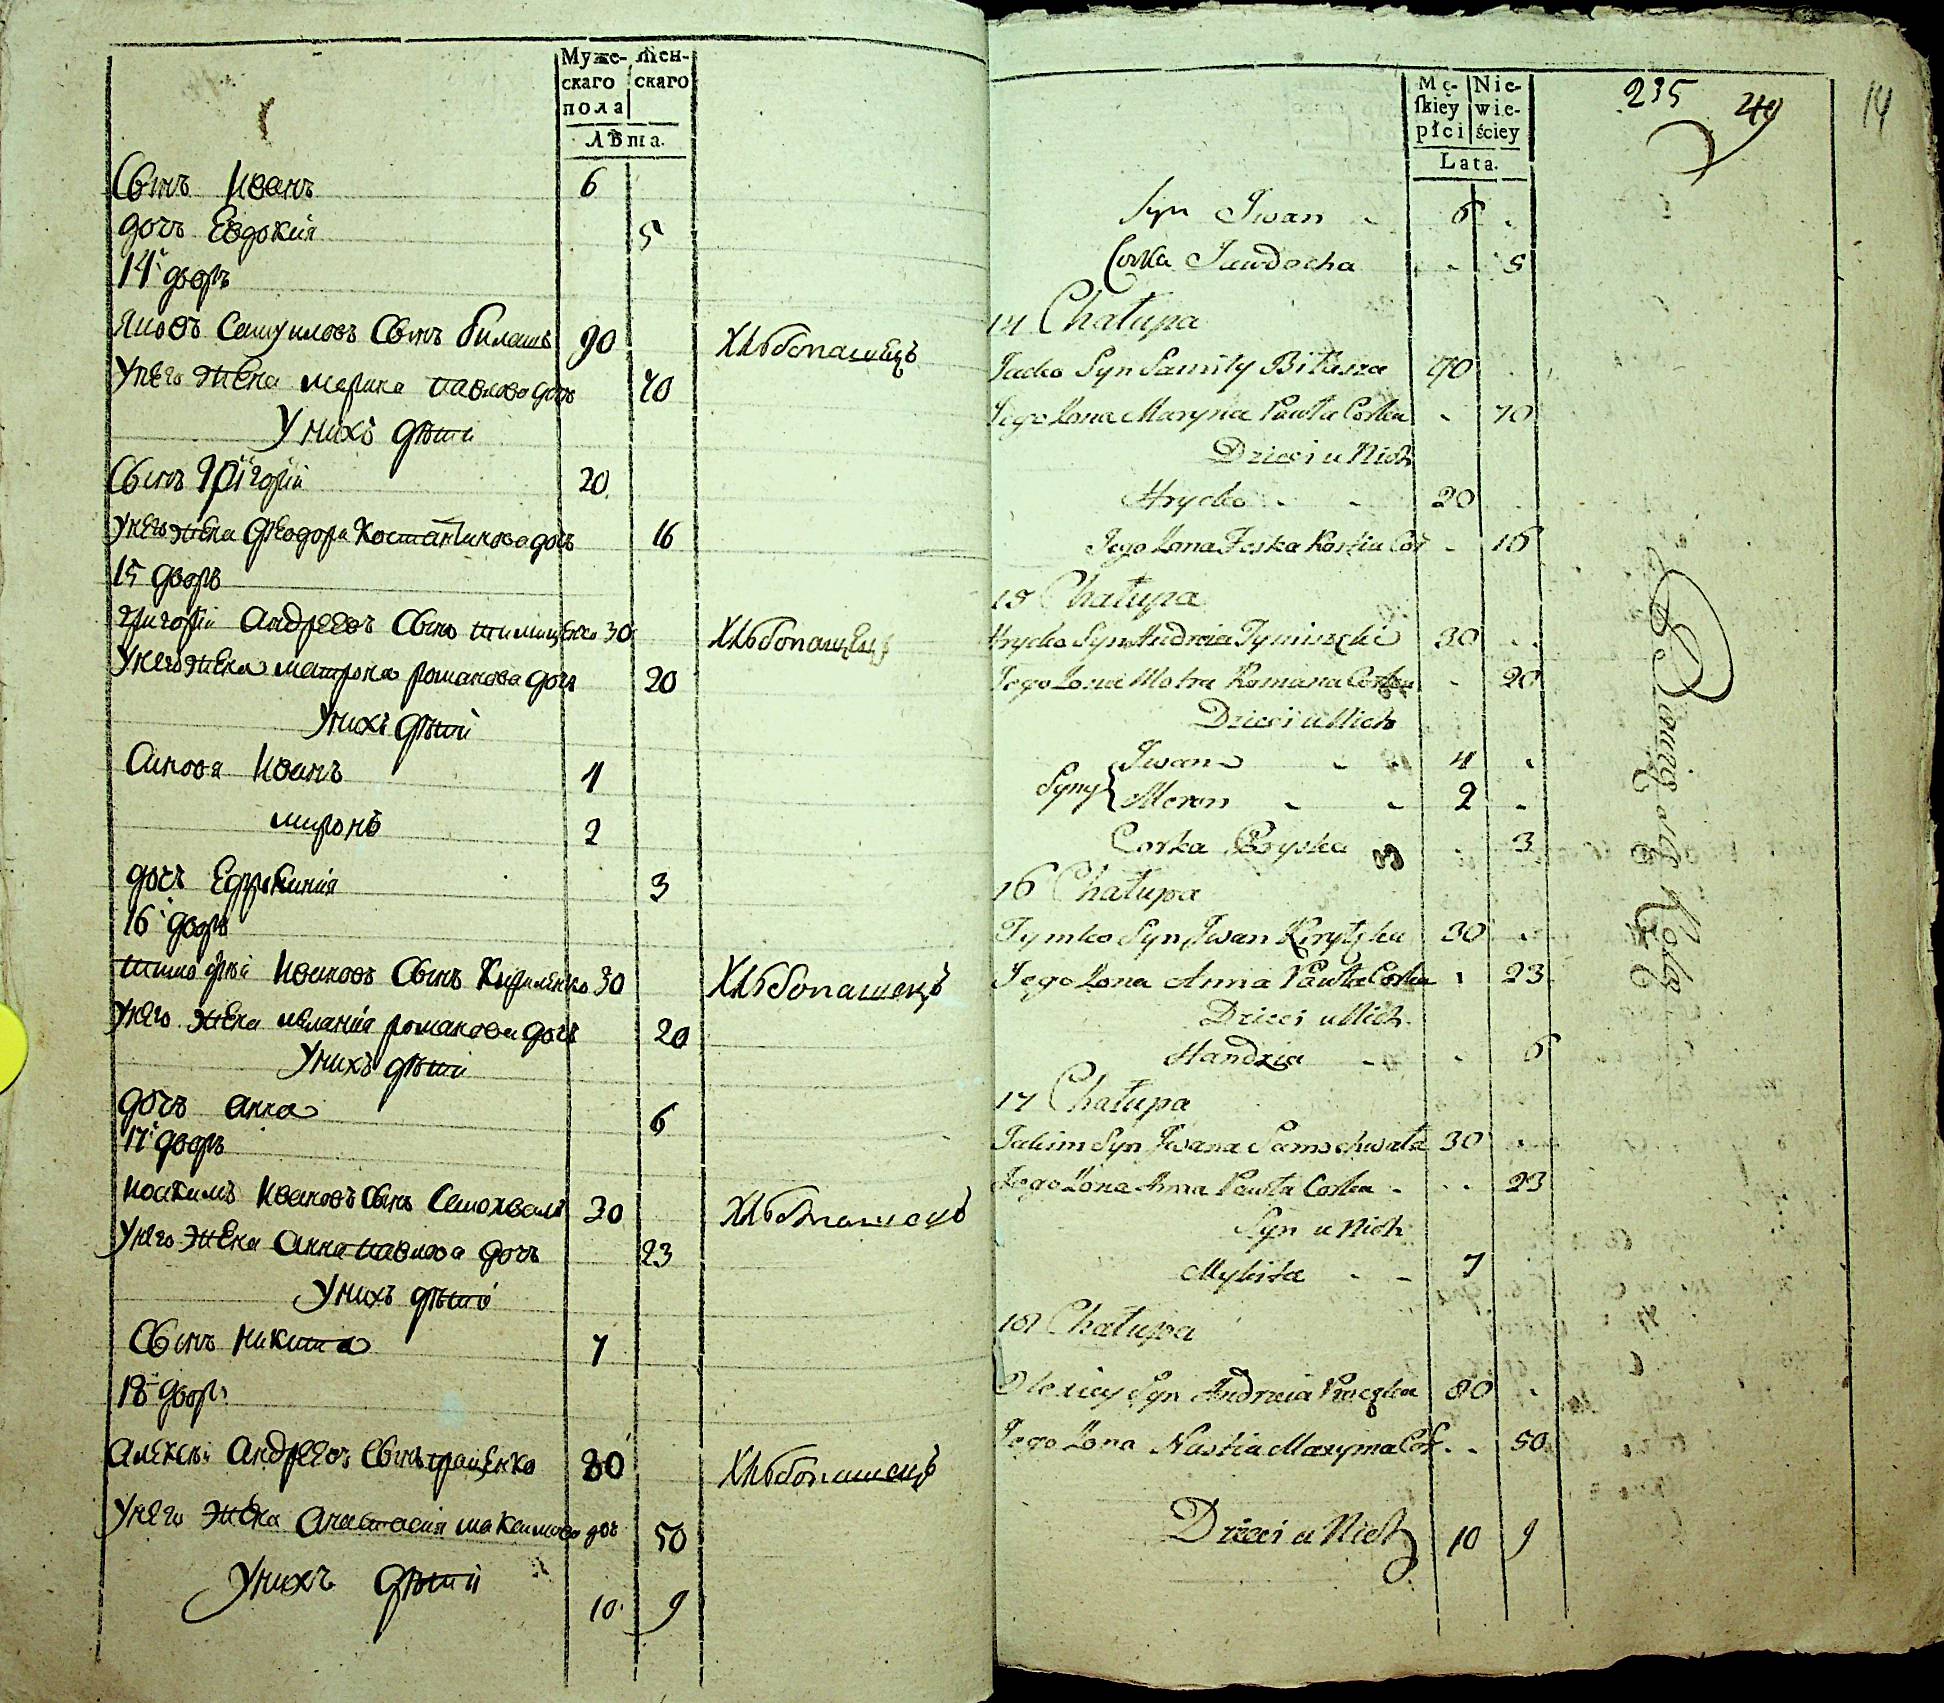 Муже- Жен-
скаго скаго
пола
Лѣта.
Сынъ Иванъ 6
дочь Евдокия 5
14й дворъ
Яковъ Самуиловъ Сынъ Билашъ 90 Хлѣбопашецъ
У него жена марина павлова дочь 70
У нихъ дѣти
Сынъ Григорiй 20
У него жена Феодора Костантинова дочь 16
15 дворъ
григорiй Андреевъ Сынъ тимищенко 30 Хлѣбопашецъ
У него жена матрона романова дочь 20
У нихъ дѣти
Синовя Иванъ 4
миронъ 2
дочь 3
16й дворъ
тимофѣй Ивановъ Сынъ Кириленко 30 Хлѣбопашецъ
У него жена меланiя романова дочь 20
У нихъ дѣти
дочь анна 6
17й дворъ
иоакимъ Ивановъ Сынъ Самохвалъ 30 Хлѣбопашецъ
У него жена Анна павлова дочь 23
У нихъ дѣти
Сынъ никита 7
18й дворъ
алексѣй Андреевъ Сынъ 80 Хлѣбопашецъ
У него жена Анастасия максимова дочь 50
У нихъ дѣти
10 9
Mę- Nie-
skiey wie-
płci ściey
Lata.
235 49 14
Syn Iwan 6
Corka Jawdocha 5
14 Chałupa
Jacko Syn Samiły Biłasza 90
Jego Zona Maryna Pawła Corka 70
Dzieci u Nich
Hrycko 20
Jego Zona Feska Kostia Cor 16
15 Chałupa
Hrycko Syn Andreia 30
Jego Zona Motra Romana Corka 20
Dzieci u Nich
Iwan 4
Syny
Meron 2
Corka Pryska 3
16 Chałupa
Tymko Syn Iwan 30
Jego Zona Anna Pawła Corka 23
Dzieci u Nich
Handzia 6
17 Chałupa
Jakim Syn Iwana Samochwała 30
Jego Zona Anna Pawła Corka 23
Syn u Nich
Mykita 7
18 Chałupa
Olexiey Syn Andreia 80
Jego Zona Nastia Maxyma Cor. 50
Dzieci u Nich 10 9